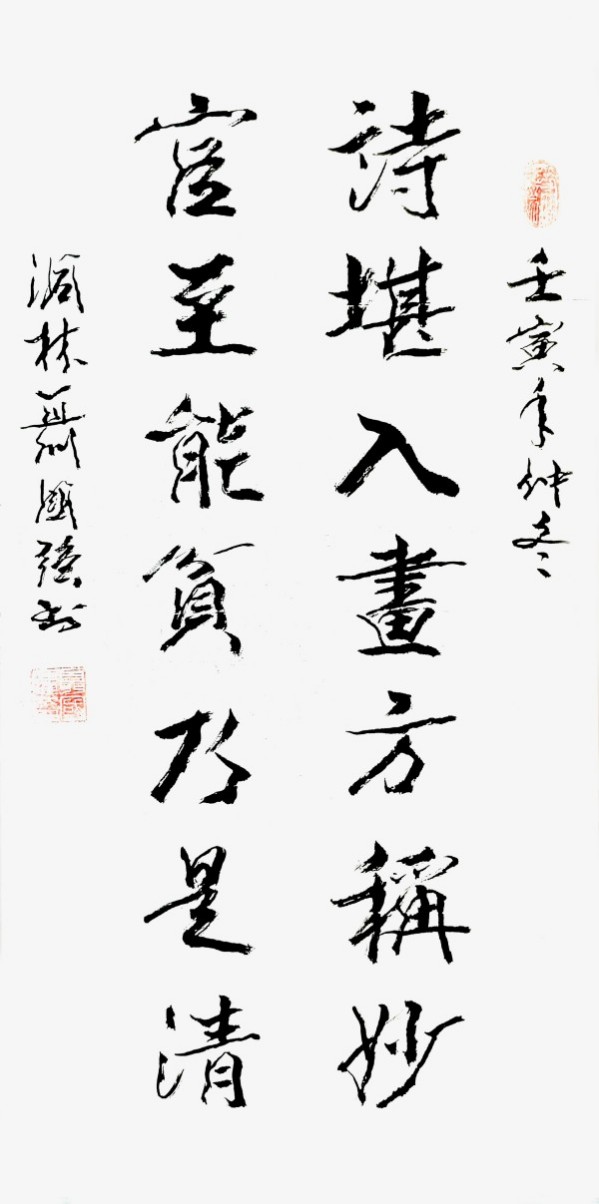 壬寅年仲冬
詩堪入畫方稱妙
官至能貧乃是清
林聶强书